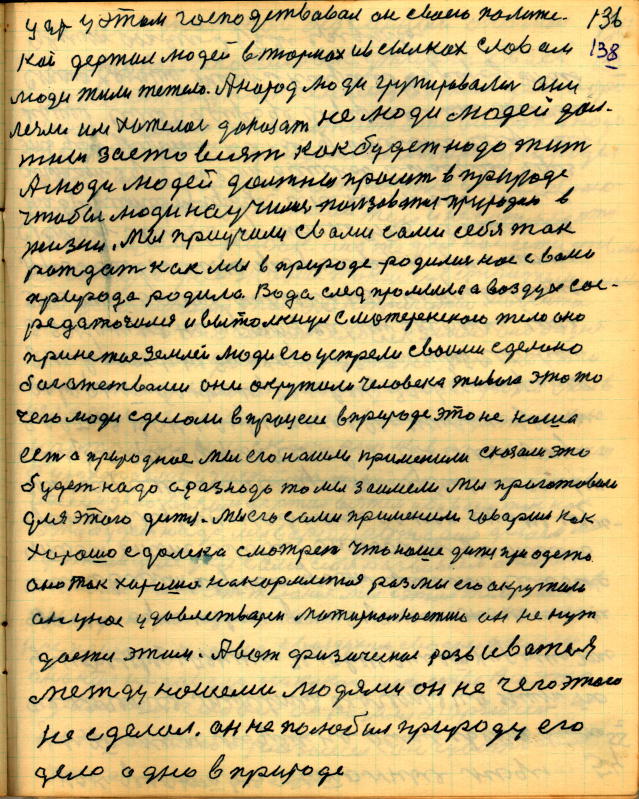 у гр у этом господствовал он своею полити- 136
кой держал людей в тюрмах и в сылках словам 138
люди жили тежело. А народ люди групировалис они
легли им хотелос доказат не люди людей дол-
жны застовлят как будет надо жит
А люди людей должны просит в природе
чтобы люди научились ползоватся природаю в
жизни. Мы приучили свами сами себя так
раждат как мы в природе родилис нас свами
природа родила. Вода след промыла а воздух сос-
редаточился и вытолкнул сматеренского тело оно
принетае землей люди его устрели своими сделано
богатжествами они окружили человека живова это то
чего люди сделали в процеси в природе это не наша
ест а природнае мы его нашли применили сказали это
будет надо а раз надо то мы заимели мы приготовили
для этого дитя. Мы его сами применили говориш как
хорошо с далека смотрет что наше дитя приодето
оно так хорошо накормленая раз мы его окружили
он у нас удовлетварен матириалностию он не нуж
дается этим. А вот физически развиватся
между нашеми людями он не чего этого
не сделал. он не полюбил природу его
дело одно в природе